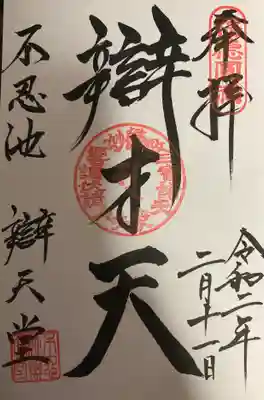 奉拝
令和二年
二月十一日
辯才天
不忍池 辯天堂